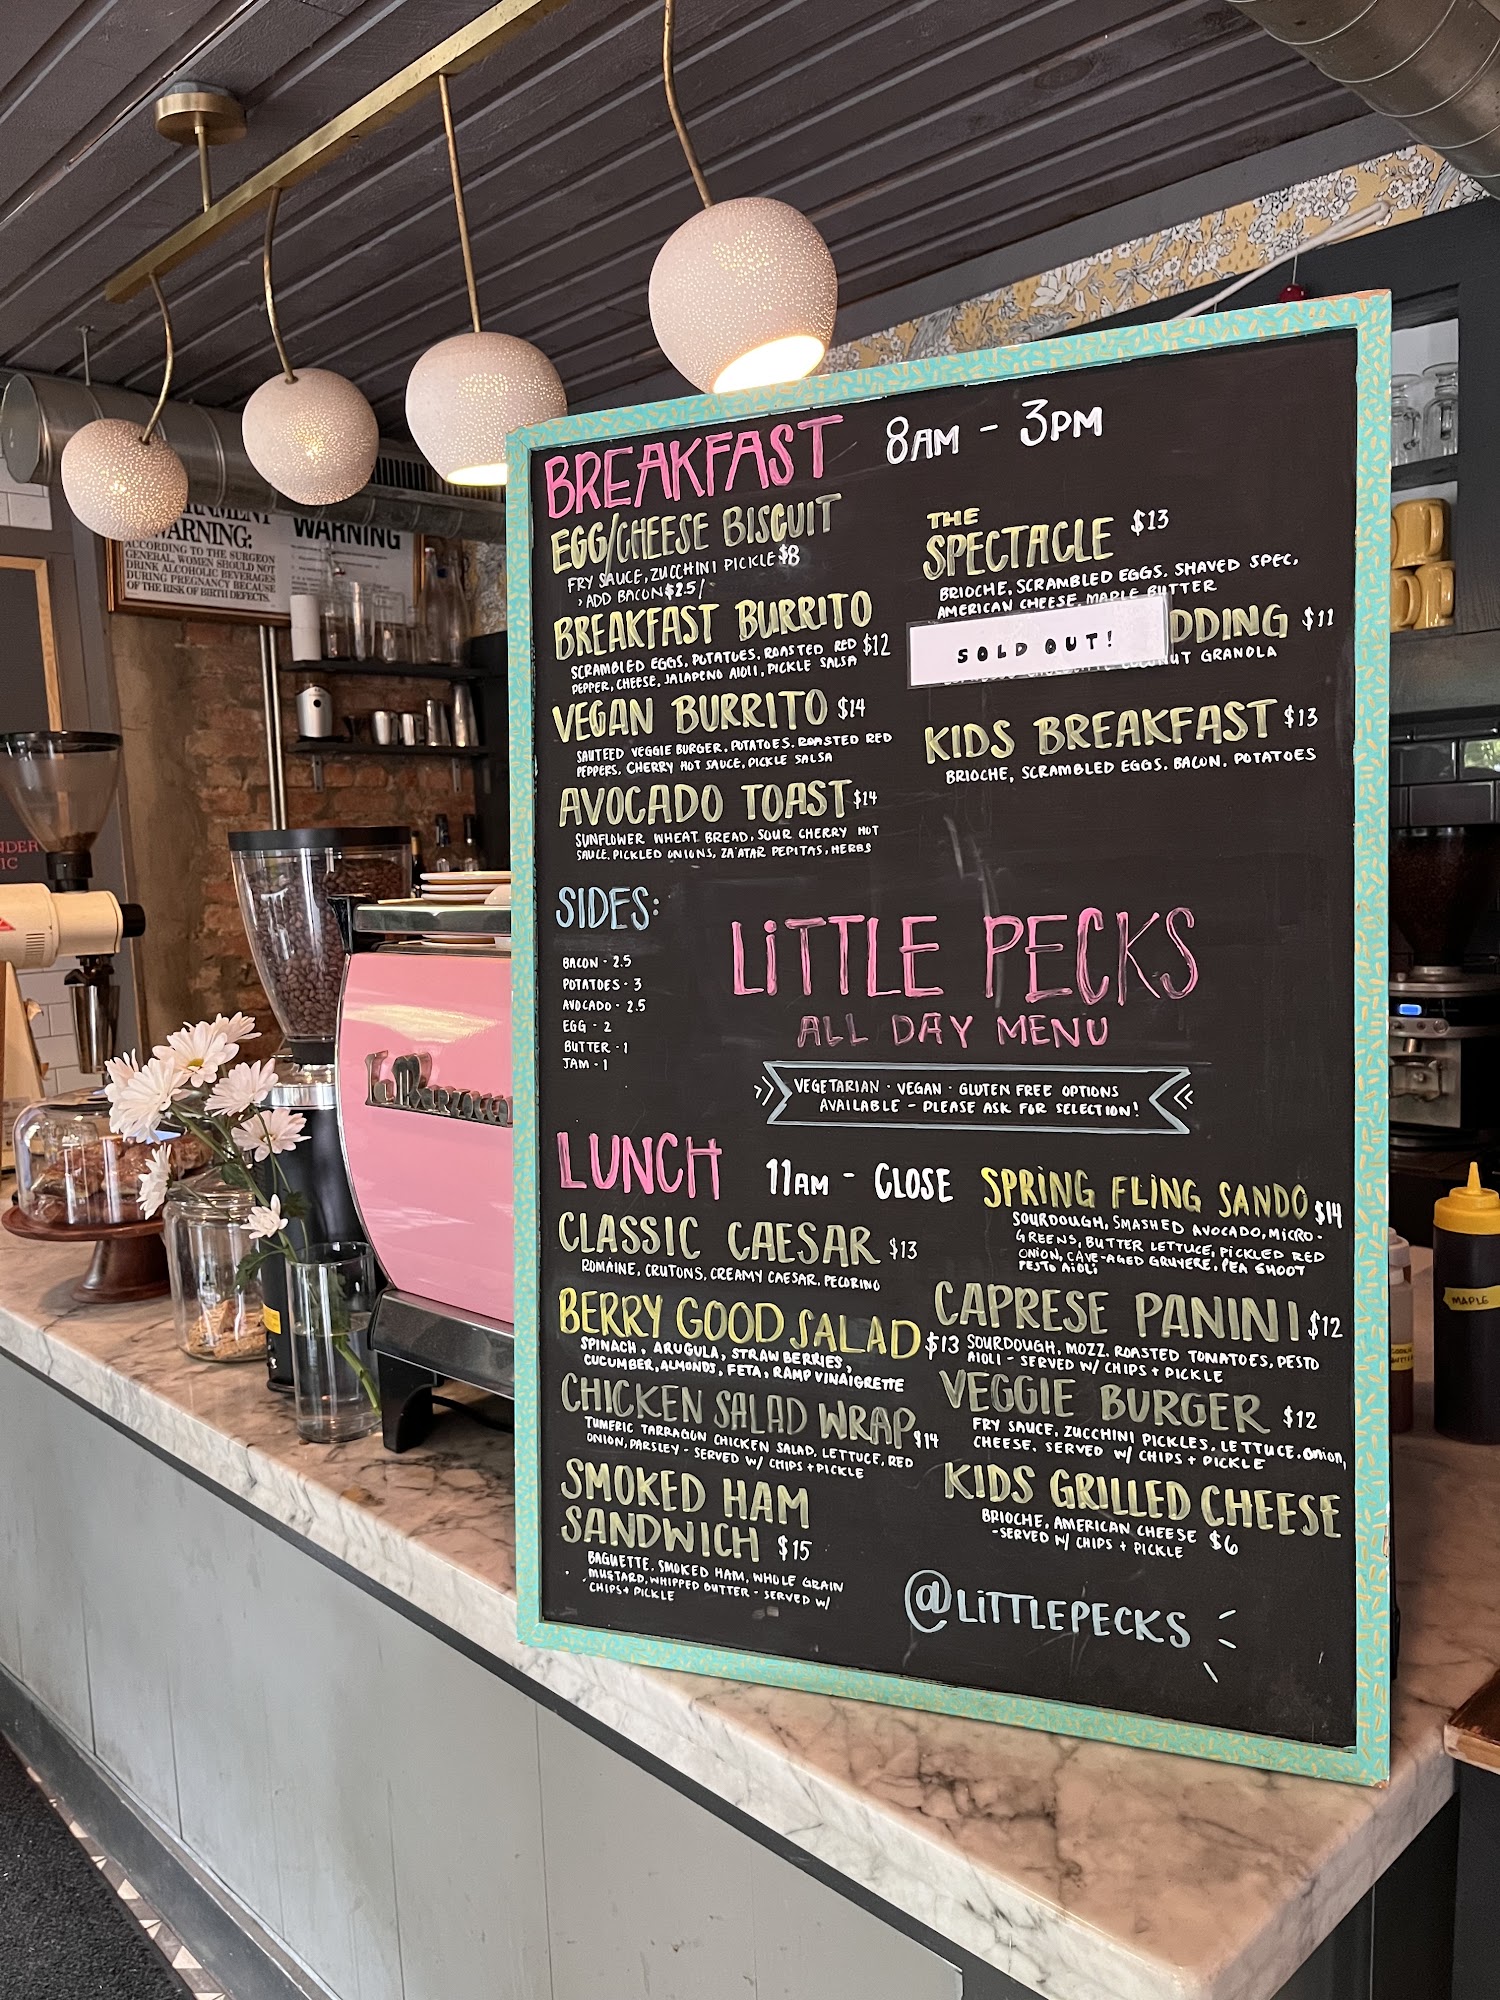 WARNING:
ACCORDING TO THE SURGEON
GENERAL, WOMEN SHOULD NOT
DRINK ALCOHOLIC BEVERAGES
DURING PREGNANCY BECAUSE
OF THE RISK OF BIRTH DEFECTS.
WARNING
BREAKFAST 8AM - 3PM
EGG/CHEESE BISCUIT
FRY SAUCE, ZUCCHINI PICKLE $8
> ADD BACON $2.5/
BREAKFAST BURRITO
SCRAMBLED EGGS, POTATOES, ROASTED RED $12
PEPPER, CHEESE, JALAPENO AIOLI, PICKLE SALSA
VEGAN BURRITO $14
SAUTEED VEGGIE BURGER, POTATOES, ROASTED RED
PEPPERS, CHERRY HOT SAUCE, PICKLE SALSA
AVOCADO TOAST $14
SUNFLOWER WHEAT BREAD, SOUR CHERRY HOT
SAUCE, PICKLED ONIONS, ZA'ATAR PEPITAS, HERBS
THE
SPECTACLE $13
BRIOCHE, SCRAMBLED EGGS, SHAVED SPEC,
AMERICAN CHEESE, MAPLE BUTTER
SOLD OUT!
DDING $11
GRANOLA
KIDS BREAKFAST $13
BRIOCHE, SCRAMBLED EGGS, BACON, POTATOES
SIDES:
BACON - 2.5
POTATOES - 3
AVOCADO - 2.5
EGG - 2
BUTTER - 1
JAM - 1
LITTLE PECKS
ALL DAY MENU
VEGETARIAN · VEGAN · GLUTEN FREE OPTIONS
AVAILABLE - PLEASE ASK FOR SELECTION!
LUNCH 11AM - CLOSE
CLASSIC CAESAR $13
ROMAINE, CRUTONS, CREAMY CAESAR, PECORINO
BERRY GOOD SALAD $13
SPINACH, ARUGULA, STRAWBERRIES,
CUCUMBER, ALMONDS, FETA, RAMP VINAIGRETTE
CHICKEN SALAD WRAP $14
TUMERIC TARRAGON CHICKEN SALAD, LETTUCE, RED
ONION, PARSLEY - SERVED W/ CHIPS + PICKLE
SMOKED HAM
SANDWICH $15
BAGUETTE, SMOKED HAM, WHOLE GRAIN
MUSTARD, WHIPPED BUTTER - SERVED W/
CHIPS + PICKLE
SPRING FLING SANDO $14
SOURDOUGH, SMASHED AVOCADO, MICRO-
GREENS, BUTTER LETTUCE, PICKLED RED
ONION, CAVE-AGED GRUYERE, PEA SHOOT
PESTO AIOLI
CAPRESE PANINI $12
SOURDOUGH, MOZZ, ROASTED TOMATOES, PESTO
AIOLI - SERVED W/ CHIPS + PICKLE
VEGGIE BURGER $12
FRY SAUCE, ZUCCHINI PICKLES, LETTUCE, ONION,
CHEESE, SERVED W/ CHIPS + PICKLE
KIDS GRILLED CHEESE
BRIOCHE, AMERICAN CHEESE $6
-SERVED W/ CHIPS + PICKLE
@LITTLEPECKS
MAPLE